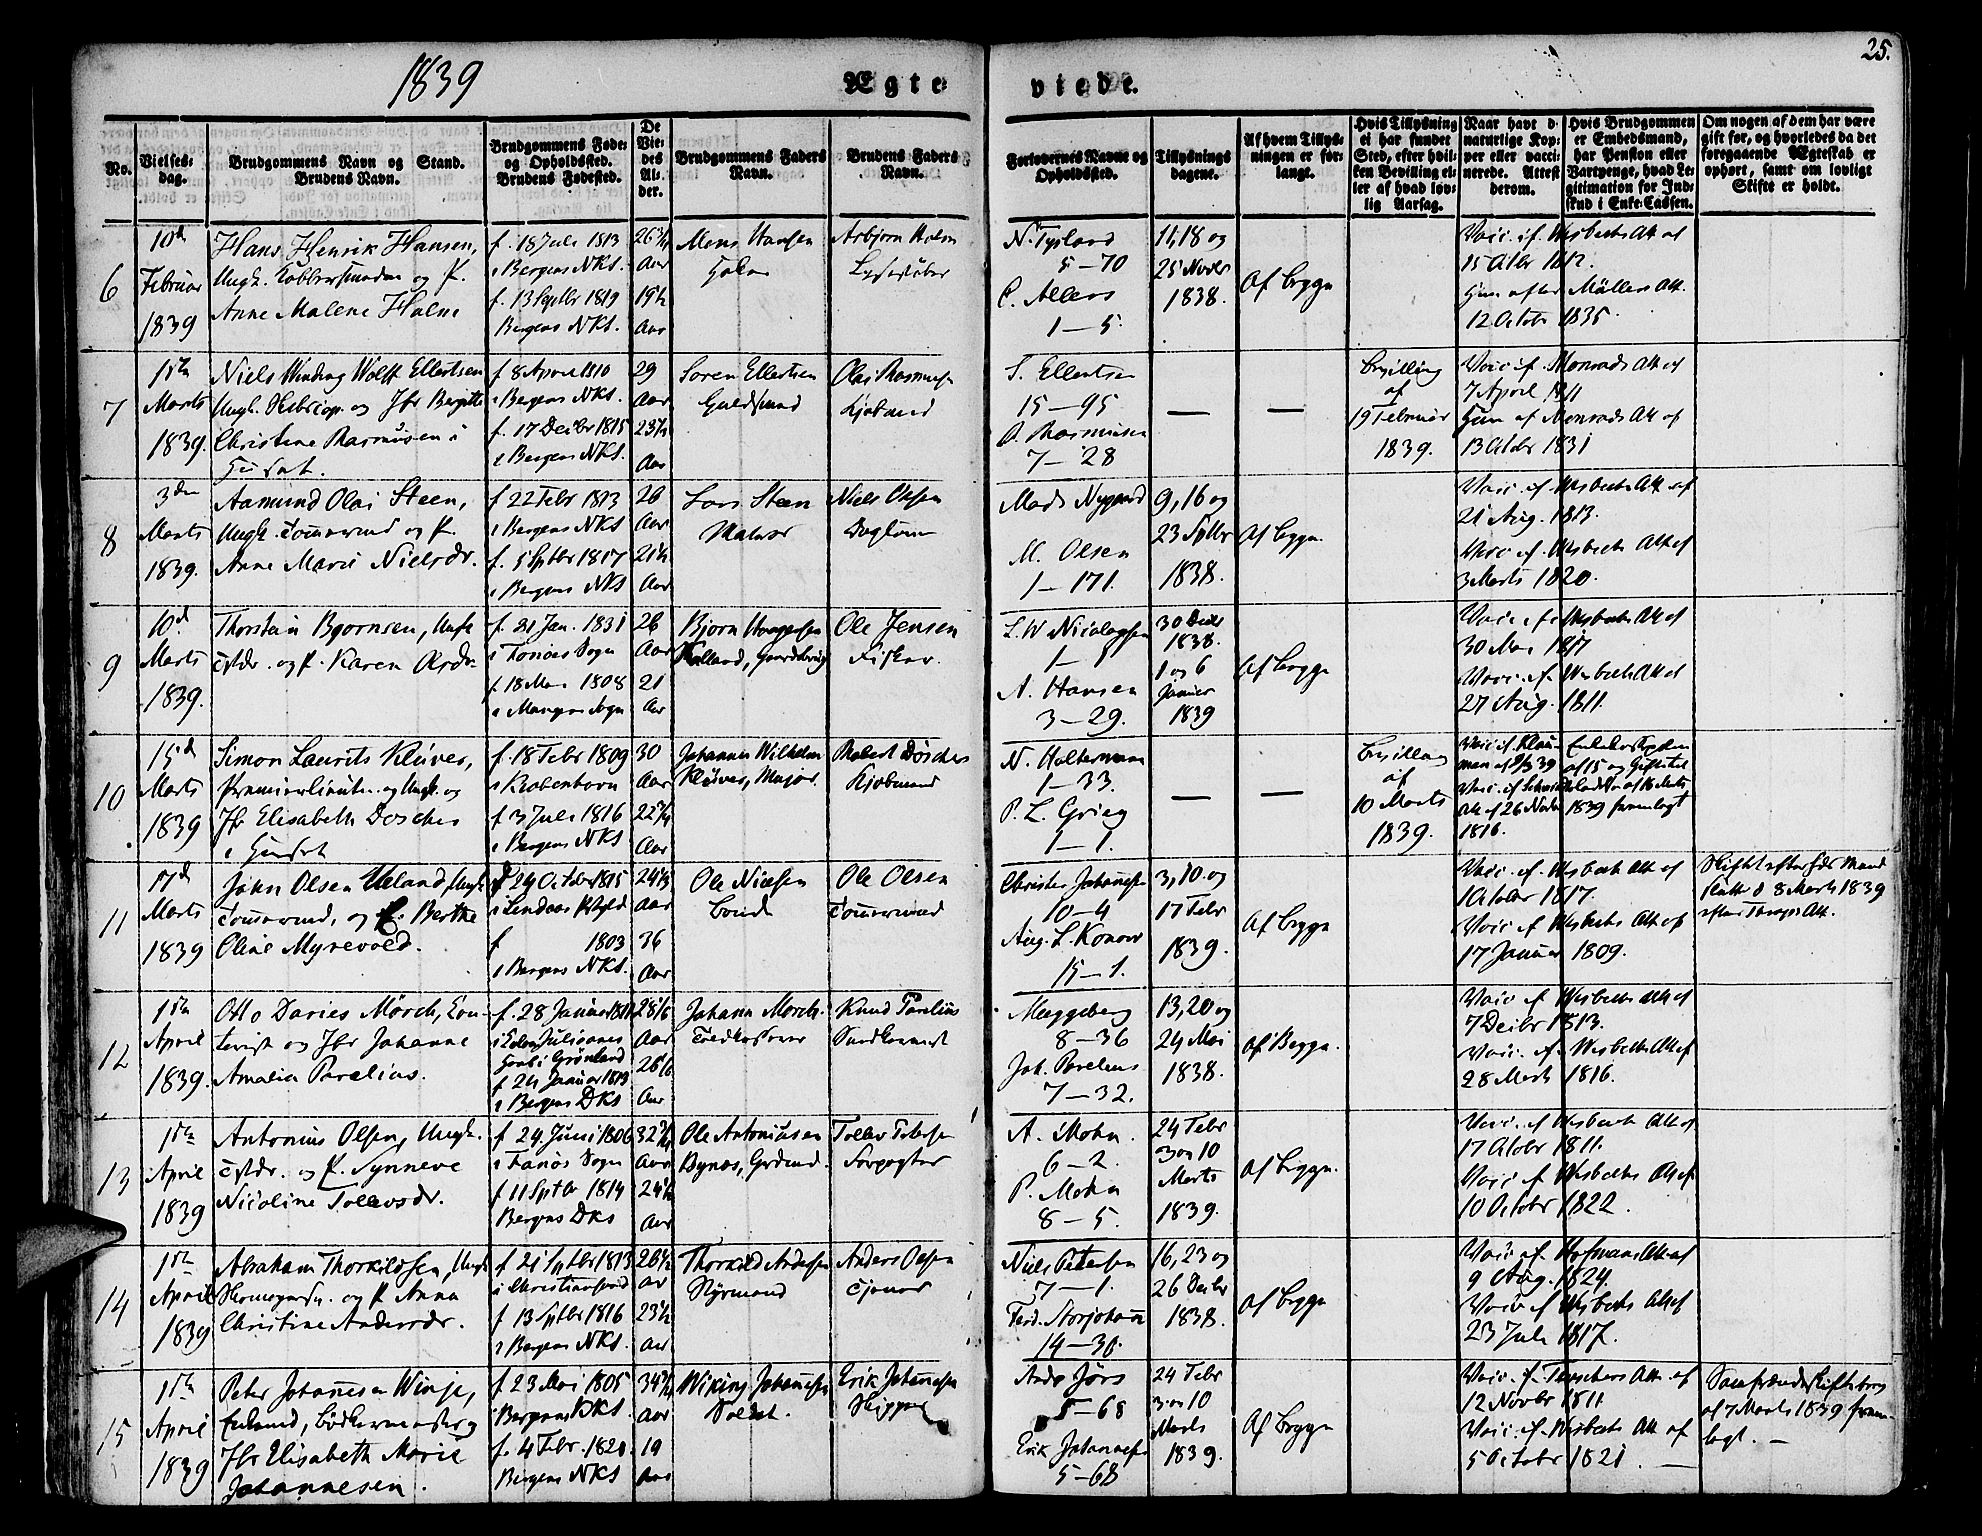 25.
1839
Ægte
viede.
No.
Vielses-
dag.
Brudgommens Navn og Stand.
Brudens Navn.
Brudgommens Føde-
og Opholdssted.
Brudens Fødested.
De
Vie-
des
Al-
der.
Brudgommens Faders
Navn.
Brudens Faders
Navn.
Forlovernes Navne og
Opholdssted.
Tillysnings
dagene.
Af hvem Tillys-
ningen er for-
langt.
Hvis Tillysning
ei har fundet
Sted, efter hvil-
ken Bevilling el-
ler af hvad lov-
lig Aarsag.
Naar havt d.
naturlige Kop-
per eller vacci-
nerede. Attest
derom.
Hvis Brudgommen
er Embedsmand,
har Pension eller
Vartpenge, hvad Le-
gitimation for Ind-
skud i Enke-Cassen.
Om nogen af dem har være
gift før, og hvorledes da det
foregaaende Ægteskab er
ophørt, samt om lovligt
Skifte er holdt.
6
10de
Februar
1839
Hans Henrik Hansen,
Ungk. og P.
Anne Malene Holm
f. 18 Juli 1813
i Bergens NKS.
f. 13 Septbr 1819
Bergens NKS.
Aar
19½
Aar
Mons Hansen
Asbjørn Holm
N. Tysland
5-70
C. Allers
1-5
11, 18 og
25 Novbr
1838.
af Brgm
Vacc. ef. Wesbechs Att af
15 Octbr 1812.
Møllers Att.
12 Octobr 1835
7
Marts
1839.
Niels Winding Wolff Ellertsen
Ungk. og Jfr Bergitte
Christine Rasmusen i
f 8 April 1810
i Bergens NKS.
f. 17 Decbr 1815
i Bergens NKS.
29
Aar
23¼
Aar
Søren Ellertsen
Guldsmed
Olai Rasmusen
Kjøbmd
S. Ellertsen
15-95
O. Rasmusen
7-28
—
—
Bevilling
af
19 Februar
1839.
Vacc. ef. Monrads Att af
7 April 1811
Monrads Att af
13 Octbr 1831
8
3die
Marts
1839.
Aamund Olai Steen,
Ungk. Tømmermd og P.
Anne Marie Nielsdr.
f 22 Febr 1813
i Bergens NKS
f. 5 Septbr 1817
i Bergens NKS
26
Aar
21½
Aar
Lars Steen
Matros
Niels Olsen
Mads Nygaard
M. Olsen
1-171.
9, 16 og
23 Septbr
1838.
af Brgm.
Vacc. ef. Wesbechs Att af
21 Aug. 1813.
Vacc. ef. Wesbechs Att af
3 Marts 1820.
9
10de
Marts
1839.
Thorstein Bjørnsen, Ungk
og P. Karen
f. 21 Jan. 1831
i Fanøes Sogn
f 18 Mai 1808
i Mangers Sogn
26
Aar
21
Aar
Ole Jensen
Fisker.
L. W Nicolaysen
1-1
A. Hansen
3-29.
30 Decbr
1838.
1 og 6
Januar
1839
af Brgm
Vacc. ef. Wesbechs Att af
30 Mai 1817
Vacc. ef. Wesbechs Att af
27 Aug. 1811.
10
15de
Marts
1839
Simon Laurits Klüver,
Premierlieutn. og Ungk. og
Jfr Elisabeth Døscher
i
f 18 Febr 1809
i Kiøbenhavn
f 3 Juli 1816
i Bergens NKS
30
Aar
Aar
Johannes Wilhelm
Klüver, Major.
Robert Døscher
Kjøbmand
N. Holtermann
1-33.
P. L. Grieg
1-1.
—
—
Bevilling
af
10 Marts
1839.
Att af 26 Novbr
1816.
1839 fremlagt
11
17de
Marts
1839
John Olsen Ueland, Ungk.
Tømmermd, og P. Berthe
Oline Myrevold.
f 24 October 1815
i Lindaas
f 1803
i Bergens NKS.
Aar
36
Aar
Ole Nielsen
Bonde
Ole Olsen
Tømmermd
Christen Johannesen
10-4
Aug. L. Konow
15-1.
3, 10 og
17 Febr
1839.
af Brgm
Vacc. ef. Wesbechs Att af
October 1817.
Vacc. ef. Wesbechs Att af
17 Januar 1809.
8 Marts 1839
12
April
1839.
Otto Daries Mørch, Con-
torist og Jfr Johanne
Amalia Parelius.
f. 28 Januar
Julianes
i Grønland
f 24 Januar 1813
i Bergens DKS
28 1/6
Aar
26 1/6
Aar
Johann Mørch
Knud Parelius
Meggeberg
8-36
Joh. Parelius
7-32.
13, 20 og
24 Mai
1838.
af Brgm.
Vacc. ef. Wesbechs Att af
7 Decbr 1813.
Vacc. ef. Wesbechs Att af
28 Marts 1816.
13
April
1839
Antonius Olsen, Ungk.
og P. Synneve
Nicoline Tollevsdr.
f 24 Juni 1806
i Fanøs Sogn
f 11 Septbr 1814
Bergens DKS
Aar
24½
Aar
Ole Antoniusen
Tollev
A. Mohn.
6-2.
P. Mohn
8-5.
24 Febr
3 og 10
Marts
1839.
af Brgm.
Vacc. ef. Wesbechs Att af
17 Octbr 1811.
Vacc. ef. Wesbechs Att af
10 Octobr 1822.
14
April
1839
Abraham Thorkildsen, Ungk
og P Anna
Christine Andersdr.
f 21 Septbr 1813
i Christiansand
f 13 Septbr 1816
i Bergens NKS.
Aar
23½
Aar
Thorkild Andersen
Styrmand
Anders Olsen
Niels Petersen
7-1.
Ferd. Storjohann
14-30.
16, 23 og
26 Decbr
1838.
af Brgm
Vacc. ef. Hofmans Att af
9 Aug. 1824.
Vacc. ef. Wesbechs Att af
23 Juli 1817.
15
April
1839
Peter Johannesen Winje,
Enkemd, Bødkermester og
Jfr Elisabeth Marie
Johannesen.
f 23 Mai 1805
Bergens DKS.
f. 4 Febr. 1820.
Bergens NKS
Aar
19
Aar
Wiking Johannesen
Soldat.
Erik Johannesen
Skipper
Ands Jørs
5-68
Erik Johannesen
5-68
24 Febr
3 og 10
Marts
1839.
af Brgm
Vacc. ef. Att. af
12 Novbr 1811
Vacc. ef. Wesbechs Att af
5 Octobr 1821. —
af 7 Marts 1839 frem-
lagt. —